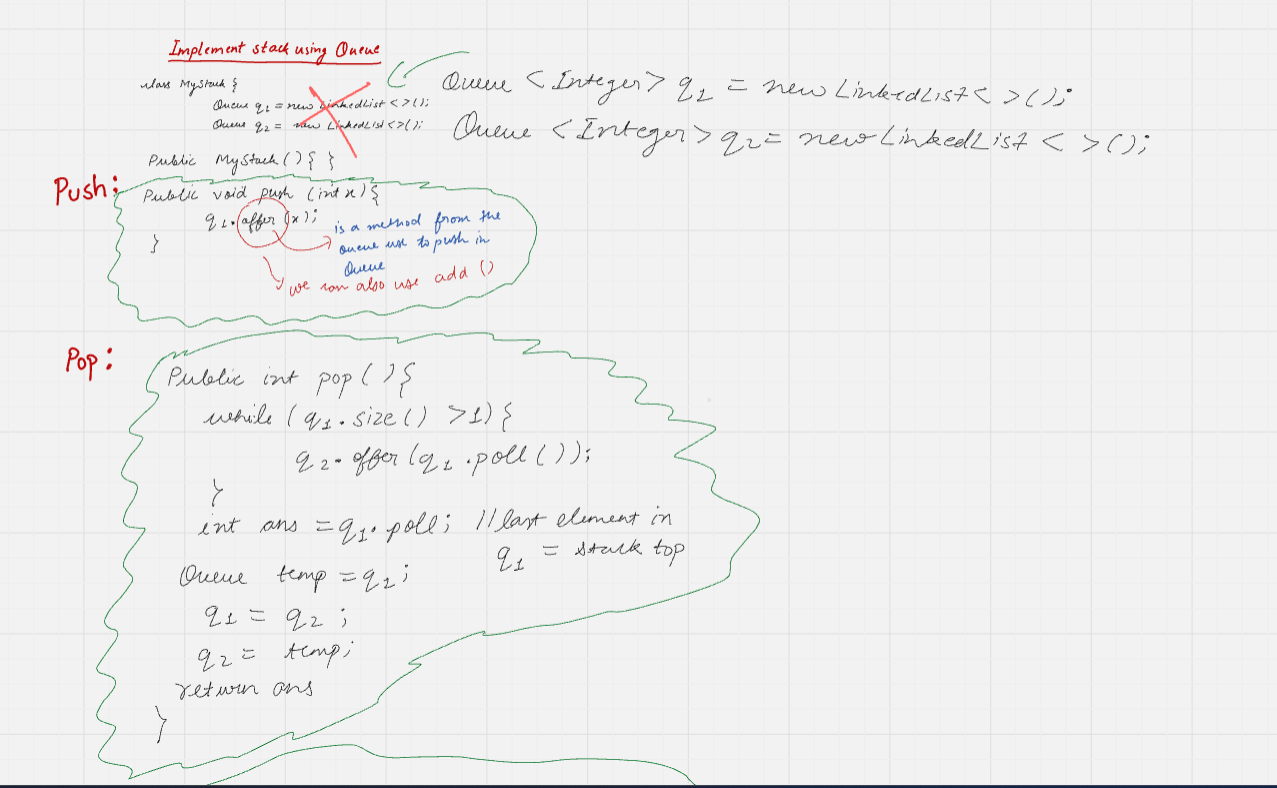 Implement stack using Queue
class MyStack {
Queue q1 = new LinkedList <>();
Queue q2 = new LinkedList <>();
Queue <Integer> q1 = new LinkedList< >();
Queue <Integer> q2 = new LinkedList < >();
Public MyStack () { }
Push:
Public void push (int x) {
q1.offer (x);
}
is a method from the
Queue use to push in
Queue
we can also use add ()
Pop:
Public int pop () {
while (q1.size() >1) {
q2.offer (q1.poll ());
}
int ans = q1.poll; // last element in
q1 = stack top
Queue temp = q1;
q1 = q2 ;
q2 = temp;
return ans
}